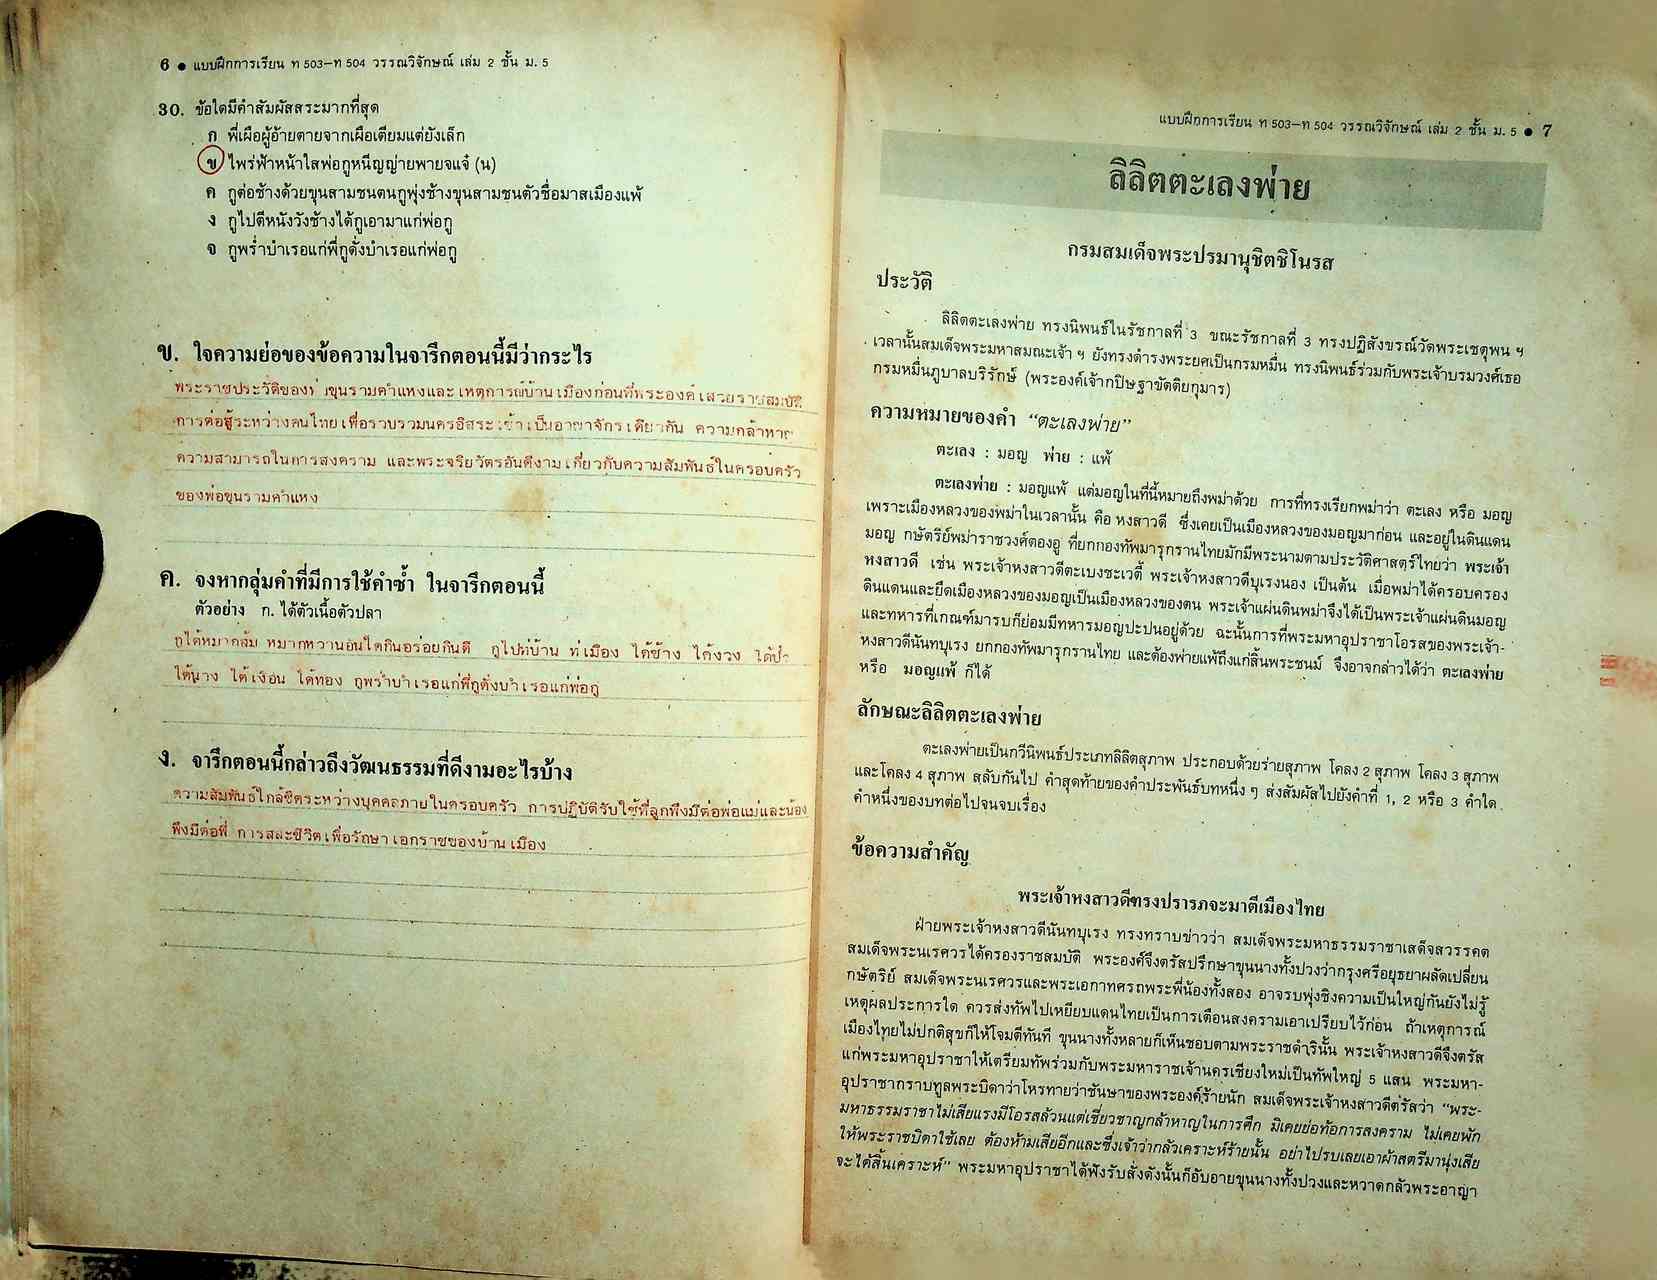 6 ● แบบฝึกการเรียน ท 503–ท 504 วรรณวิจักษณ์ เล่ม 2 ชั้น ม. 5
30. ข้อใดมีคำสัมผัสสระมากที่สุด
ก พี่เผือผู้อ้ายตายจากเผือเตียมแต่ยังเล็ก
ข ไพร่ฟ้าหน้าใสพ่อกูหนีญญ่ายพายจแจ๋ (น)
ค กูต่อช้างด้วยขุนสามชนตนกูพุ่งช้างขุนสามชนตัวชื่อมาสเมืองแพ้
ง กูไปตีหนังวังช้างได้กูเอามาแก่พ่อกู
จ กูพร่ำบำเรอแก่พี่กูดั่งบำเรอแก่พ่อกู
ข. ใจความย่อของข้อความในจารึกตอนนี้มีว่ากระไร
พระราชประวัติของพ่อขุนรามคำแหงและเหตุการณ์บ้านเมืองก่อนที่พระองค์เสวยราชสมบัติ
การต่อสู้ระหว่างคนไทยเพื่อรวบรวมนครอิสระเข้าเป็นอาณาจักรเดียวกัน ความกล้าหาญ
ความสามารถในการสงคราม และพระจริยวัตรอันดีงามเกี่ยวกับความสัมพันธ์ในครอบครัว
ของพ่อขุนรามคำแหง
ค. จงหากลุ่มคำที่มีการใช้คำซ้ำ ในจารึกตอนนี้
ตัวอย่าง ก. ได้ตัวเนื้อตัวปลา
กูได้หมากส้ม หมากหวานอันใดกินอร่อยกินดี กูไปท่บ้าน ท่เมือง ได้ช้าง ได้งวง ได้ปั่ว
ได้นาง ได้เงือน ได้ทอง กูพร่ำบำเรอแก่พี่กูดั่งบำเรอแก่พ่อกู
ง. จารึกตอนนี้กล่าวถึงวัฒนธรรมที่ดีงามอะไรบ้าง
ความสัมพันธ์ใกล้ชิดระหว่างบุคคลภายในครอบครัว การปฏิบัติรับใช้ที่ลูกพึงมีต่อพ่อแม่และน้อง
พึงมีต่อพี่ การสละชีวิตเพื่อรักษาเอกราชของบ้านเมือง
แบบฝึกการเรียน ท 503–ท 504 วรรณวิจักษณ์ เล่ม 2 ชั้น ม. 5 ● 7
ลิลิตตะเลงพ่าย
กรมสมเด็จพระปรมานุชิตชิโนรส
ประวัติ
ลิลิตตะเลงพ่าย ทรงนิพนธ์ในรัชกาลที่ 3 ขณะรัชกาลที่ 3 ทรงปฏิสังขรณ์วัดพระเชตุพน ฯ
เวลานั้นสมเด็จพระมหาสมณะเจ้า ฯ ยังทรงดำรงพระยศเป็นกรมหมื่น ทรงนิพนธ์ร่วมกับพระเจ้าบรมวงศ์เธอ
กรมหมื่นภูบาลบริรักษ์ (พระองค์เจ้ากปิษฐาขัตติยกุมาร)
ความหมายของคำ “ตะเลงพ่าย”
ตะเลง : มอญ พ่าย : แพ้
ตะเลงพ่าย : มอญแพ้ แต่มอญในที่นี้หมายถึงพม่าด้วย การที่ทรงเรียกพม่าว่า ตะเลง หรือ มอญ
เพราะเมืองหลวงของพม่าในเวลานั้น คือ หงสาวดี ซึ่งเคยเป็นเมืองหลวงของมอญมาก่อน และอยู่ในดินแดน
มอญ กษัตริย์พม่าราชวงศ์ตองอู ที่ยกกองทัพมารุกรานไทยมักมีพระนามตามประวัติศาสตร์ไทยว่า พระเจ้า
หงสาวดี เช่น พระเจ้าหงสาวดีตะเบงชะเวตี้ พระเจ้าหงสาวดีบุเรงนอง เป็นต้น เมื่อพม่าได้ครอบครอง
ดินแดนและยึดเมืองหลวงของมอญเป็นเมืองหลวงของตน พระเจ้าแผ่นดินพม่าจึงได้เป็นพระเจ้าแผ่นดินมอญ
และทหารที่เกณฑ์มารบก็ย่อมมีทหารมอญปะปนอยู่ด้วย ฉะนั้นการที่พระมหาอุปราชาโอรสของพระเจ้า-
หงสาวดีนันทบุเรง ยกกองทัพมารุกรานไทย และต้องพ่ายแพ้ถึงแก่สิ้นพระชนม์ จึงอาจกล่าวได้ว่า ตะเลงพ่าย
หรือ มอญแพ้ ก็ได้
ลักษณะลิลิตตะเลงพ่าย
ตะเลงพ่ายเป็นกวีนิพนธ์ประเภทลิลิตสุภาพ ประกอบด้วยร่ายสุภาพ โคลง 2 สุภาพ โคลง 3 สุภาพ
และโคลง 4 สุภาพ สลับกันไป คำสุดท้ายของคำประพันธ์บทหนึ่ง ๆ ส่งสัมผัสไปยังคำที่ 1, 2 หรือ 3 คำใด
คำหนึ่งของบทต่อไปจนจบเรื่อง
ข้อความสำคัญ
พระเจ้าหงสาวดีทรงปรารภจะมาตีเมืองไทย
ฝ่ายพระเจ้าหงสาวดีนันทบุเรง ทรงทราบข่าวว่า สมเด็จพระมหาธรรมราชาเสด็จสวรรคต
สมเด็จพระนเรศวรได้ครองราชสมบัติ พระองค์จึงตรัสปรึกษาขุนนางทั้งปวงว่ากรุงศรีอยุธยาผลัดเปลี่ยน
กษัตริย์ สมเด็จพระนเรศวรและพระเอกาทศรถพระพี่น้องทั้งสอง อาจรบพุ่งชิงความเป็นใหญ่กันยังไม่รู้
เหตุผลประการใด ควรส่งทัพไปเหยียบแดนไทยเป็นการเตือนสงครามเอาเปรียบไว้ก่อน ถ้าเหตุการณ์
เมืองไทยไม่ปกติสุขก็ให้โจมตีทันที ขุนนางทั้งหลายก็เห็นชอบตามพระราชดำรินั้น พระเจ้าหงสาวดีจึงตรัส
แก่พระมหาอุปราชาให้เตรียมทัพร่วมกับพระมหาราชเจ้านครเชียงใหม่เป็นทัพใหญ่ 5 แสน พระมหา-
อุปราชากราบทูลพระบิดาว่าโหรทายว่าชันษาของพระองค์ร้ายนัก สมเด็จพระเจ้าหงสาวดีตรัสว่า “พระ-
มหาธรรมราชาไม่เสียแรงมีโอรสล้วนแต่เชี่ยวชาญกล้าหาญในการศึก มิเคยย่อท้อการสงคราม ไม่เคยพัก
ให้พระราชบิดาใช้เลย ต้องห้ามเสียอีกและซึ่งเจ้าว่ากลัวเคราะห์ร้ายนั้น อย่าไปรบเลยเอาผ้าสตรีมานุ่งเสีย
จะได้สิ้นเคราะห์” พระมหาอุปราชาได้ฟังรับสั่งดังนั้นก็อับอายขุนนางทั้งปวงและหวาดกลัวพระอาญา